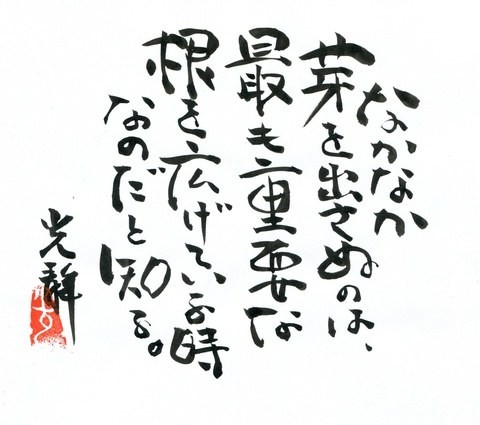 なかなか
芽を出さぬのは、
最も重要な
根を広げている時
なのだと知る。
光静